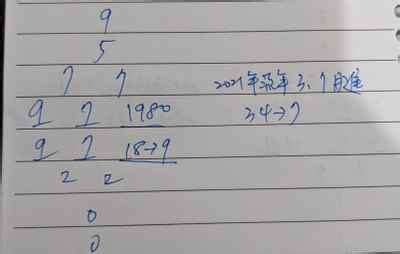 9
5
7 7 2021年流年3、7月进
9 1 1980 34→7
9 1 18→9
2 2
0
0